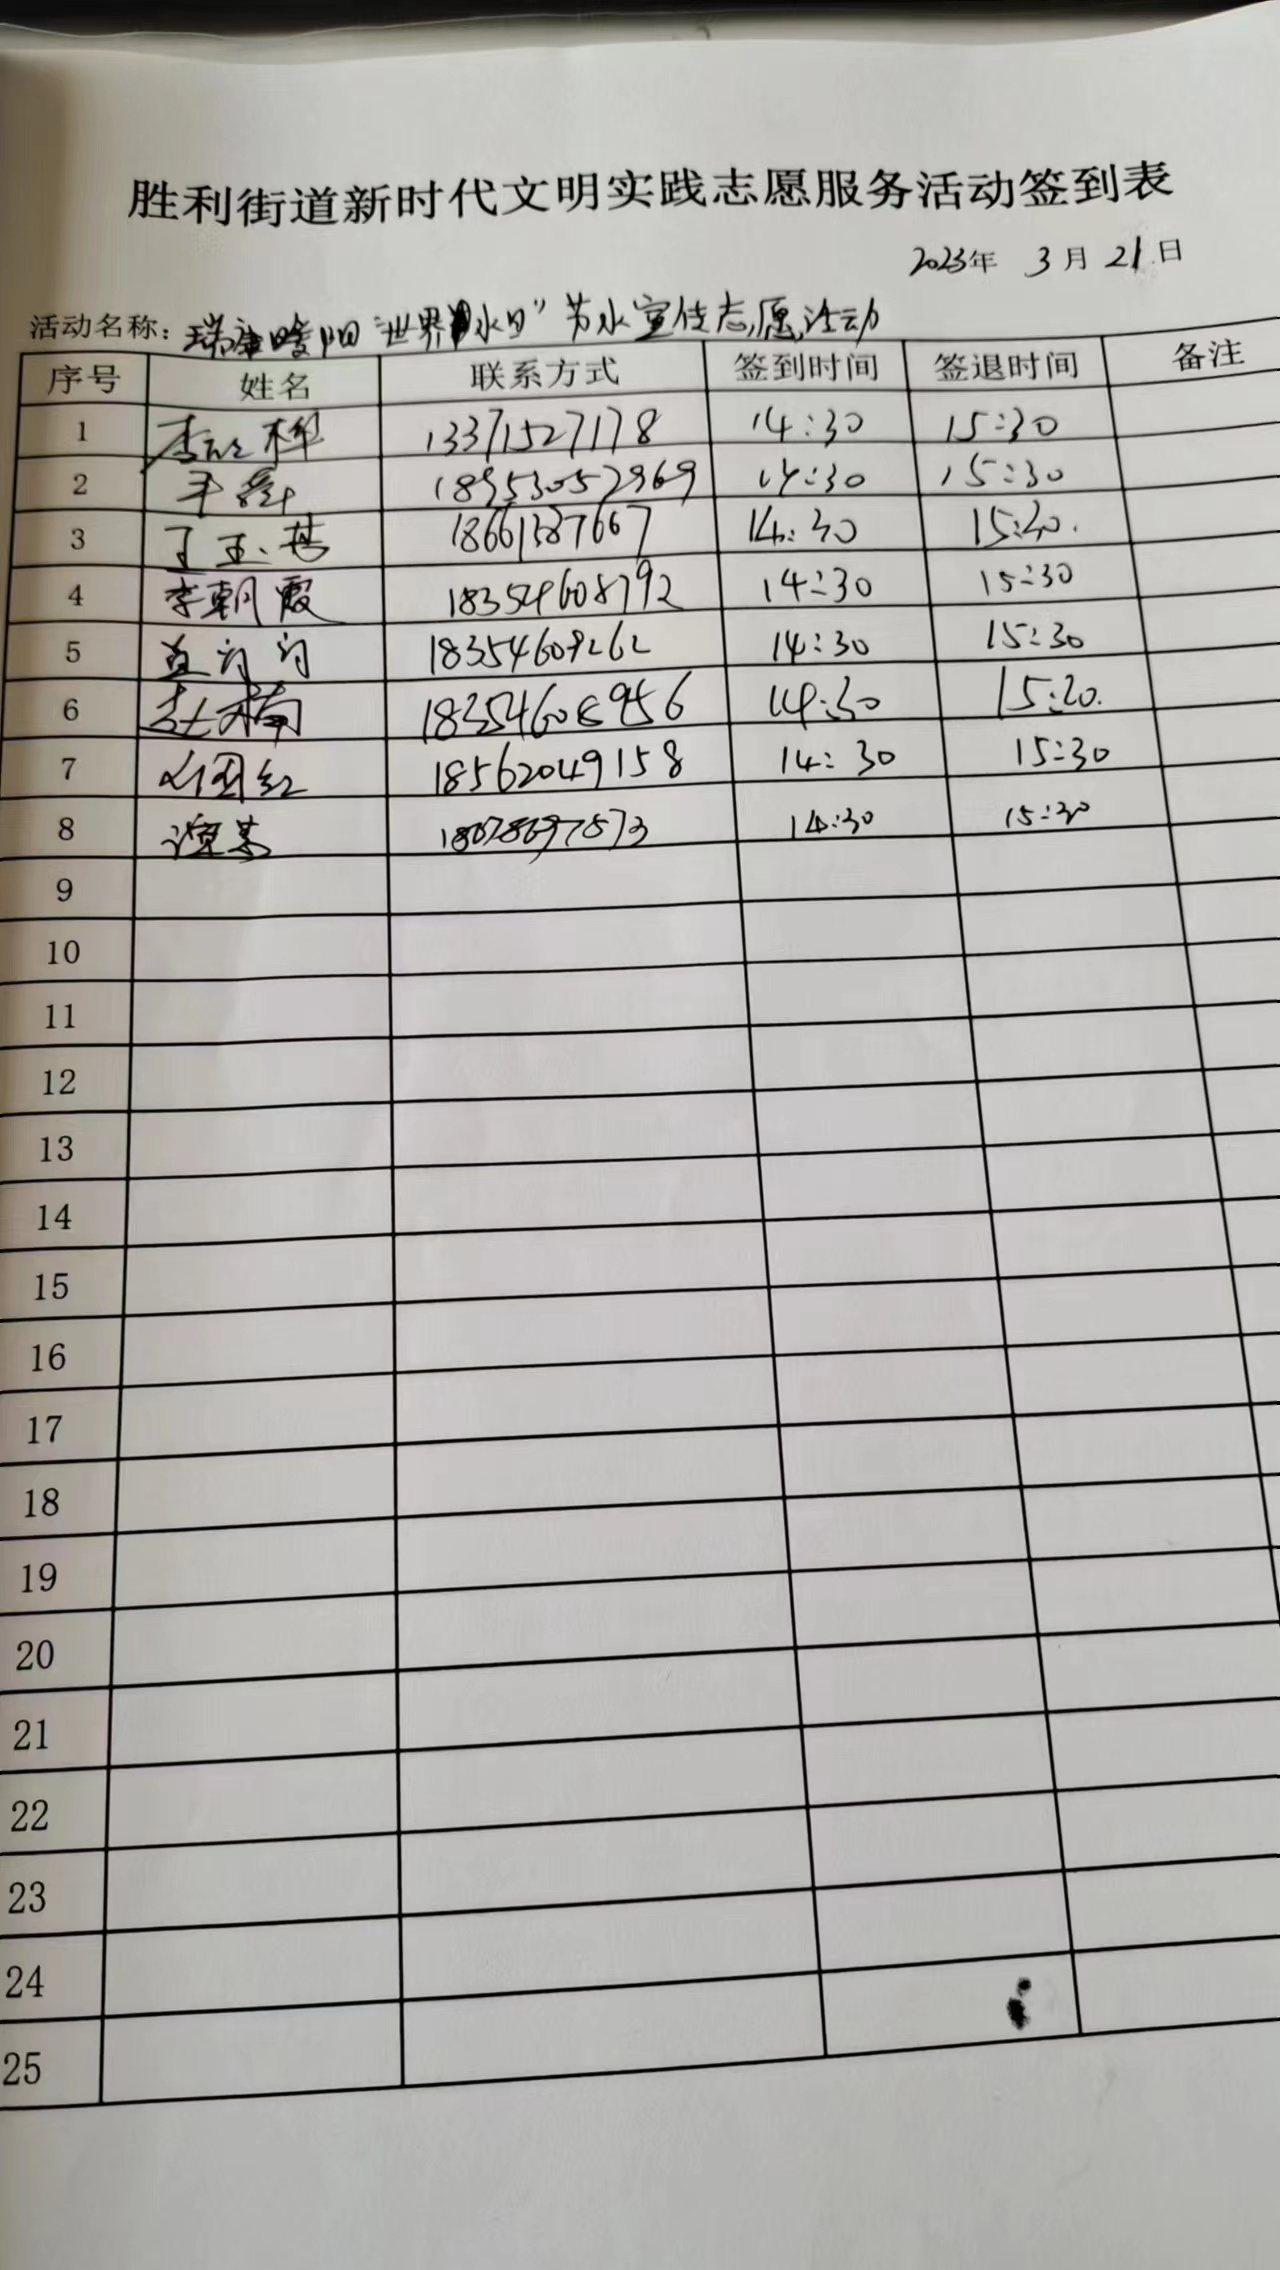 胜利街道新时代文明实践志愿服务活动签到表
2023年 3月 21日
活动名称：瑞康暖阳"世界水日"节水宣传志愿活动
序号 姓名 联系方式 签到时间 签退时间 备注
1 13371527178 14:30 15:30
2 18953052969 14:30 15:30
3 王玉 18661387667 14:30 15:30.
4 李朝霞 18354608792 14:30 15:30
5 18354609262 14:30 15:30
6 赵楠 18354608956 14:30 15:30.
7 红 18562049158 14:30 15:30
8 谭 14:30 15:30
9
10
11
12
13
14
15
16
17
18
19
20
21
22
23
24
25